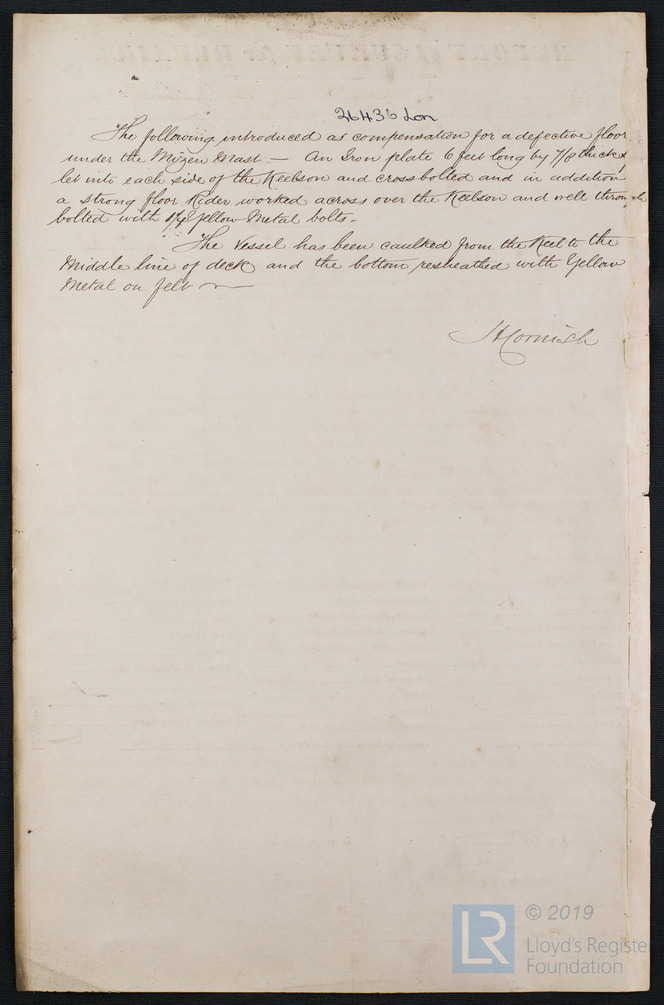 26436 Lon
The following introduced as compensation for a defective floor
under the Mizen Mast — An Iron plate 6 feet long by 7/8 thick &
let into each side of the Keelson and crossbolted and in addition
a strong floor Rider worked across over the Keelson and well through
bolted with Yellow Metal bolts -
The Vessel has been caulked from the Keel to the
Middle line of deck and the bottom resheathed with Yellow
Metal on felt
H Cornish
LR
© 2019
Lloyd's Register
Foundation